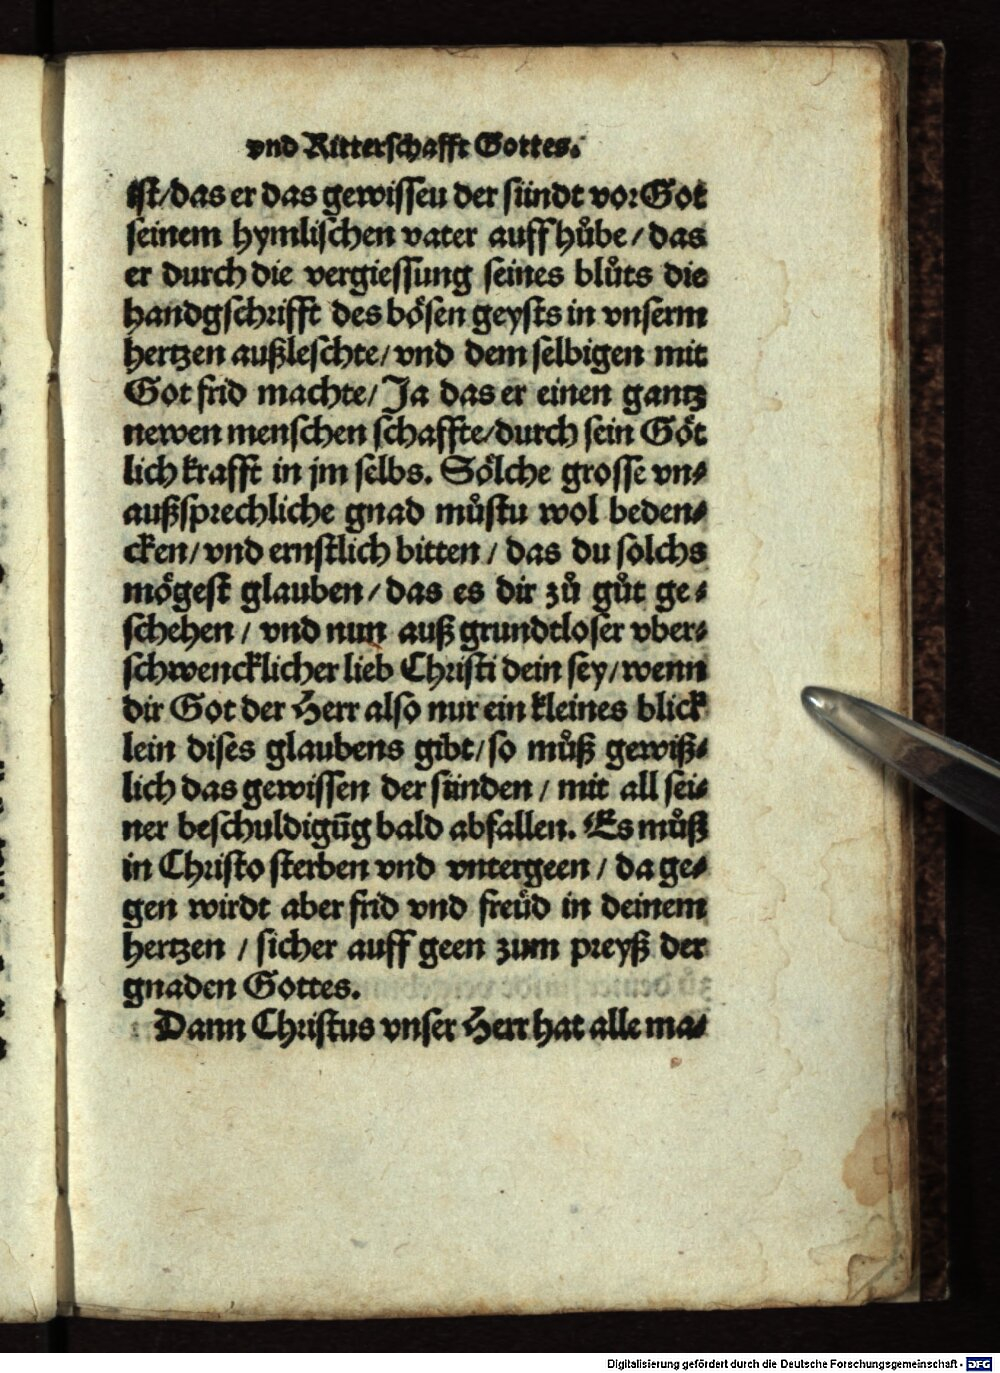 vnd Ritterschafft Gottes.
ist/das er das gewissen der sündt vor Got
seinem hymlischen vater auff hůbe/das
er durch die vergiessung seines blůts die
handgschrifft des bösen geysts in vnserm
hertzen außleschte/vnd dem selbigen mit
Got frid machte/Ja das er einen gantz
newen menschen schaffte/durch sein Göt
lich krafft in jm selbs. Sölche grosse vn⸗
außsprechliche gnad můstu wol beden⸗
cken/vnd ernstlich bitten/das du solchs
mögest glauben/das es dir zů gůt ge⸗
schehen/vnd nun auß grundtloser vber⸗
schwencklicher lieb Christi dein sey/wenn
dir Got der Herr also nur ein kleines blick
lein dises glaubens gibt/so můß gewiß⸗
lich das gewissen der sünden/mit all sei⸗
ner beschuldigūg bald abfallen. Es můß
in Christo sterben vnd vntergeen/da ge⸗
gen wirdt aber frid vnd freüd in deinem
hertzen/sicher auff geen zum preyß der
gnaden Gottes.
Dann Christus vnser Herr hat alle ma⸗
Digitalisierung gefördert durch die Deutsche Forschungsgemeinschaft - DFG